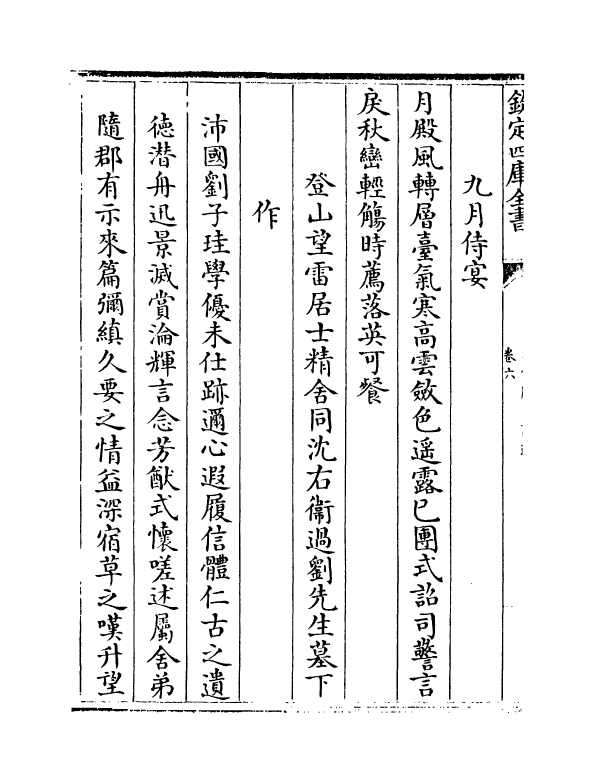 欽定四庫全書
卷六
九月侍宴
月殿風轉層臺氣寒高雲斂色遥露已團式詔司警言
戾秋巒輕觴時薦落英可餐
登山望雷居士精舍同沈右衞過劉先生墓下
作
沛國劉子珪學優未仕跡邇心遐履信體仁古之遺
德潜舟迅景滅賞淪輝言念芳猷式懷嗟述屬舍弟
隨郡有示來篇彌縝久要之情益深宿草之嘆升望